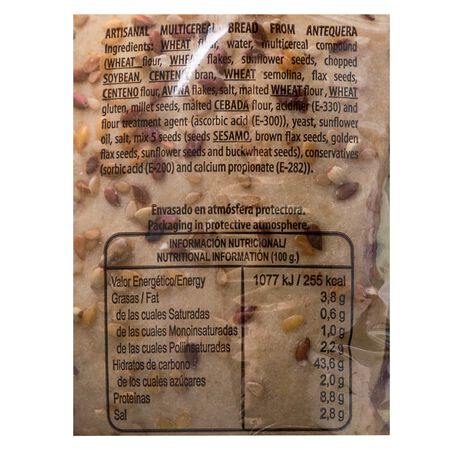 ARTISANAL MULTICEREAL BREAD FROM ANTEQUERA
Ingredients: WHEAT flour, water, multicereal compound
(WHEAT flour, WHEAT flakes, sunflower seeds, chopped
SOYBEAN, CENTENO bran, WHEAT semolina, flax seeds,
CENTENO flour, AVENA flakes, salt, malted WHEAT flour, WHEAT
gluten, millet seeds, malted CEBADA flour, acidifier (E-330) and
flour treatment agent (ascorbic acid (E-300)), yeast, sunflower
oil, salt, mix 5 seeds (seeds SESAMO, brown flax seeds, golden
flax seeds, sunflower seeds and buckwheat seeds), conservatives
(sorbic acid (E-200) and calcium propionate (E-282)).
Envasado en atmósfera protectora.
Packaging in protective atmosphere.
INFORMACIÓN NUTRICIONAL/
NUTRITIONAL INFORMATIÓN (100 g.)
Valor Energético/Energy 1077 kJ / 255 kcal
Grasas / Fat 3,8 g
de las cuales Saturadas 0,6 g
de las cuales Monoinsaturadas 1,0 g
de las cuales Poliinsaturadas 2,2 g
Hidratos de carbono 43,6 g
de los cuales azúcares 2,0 g
Proteínas 8,8 g
Sal 2,8 g